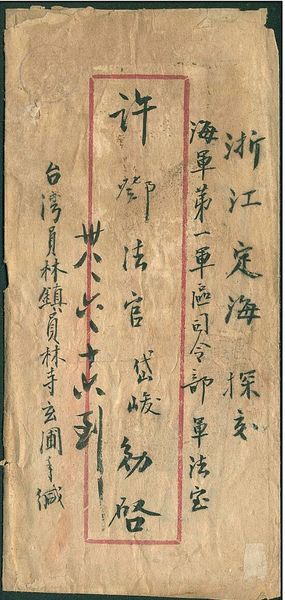 浙江定海探
海軍第一軍區司令部軍法室
許法官岱峻勛啓
卅八六十六到
台湾員林鎮員林寺玄圃手緘